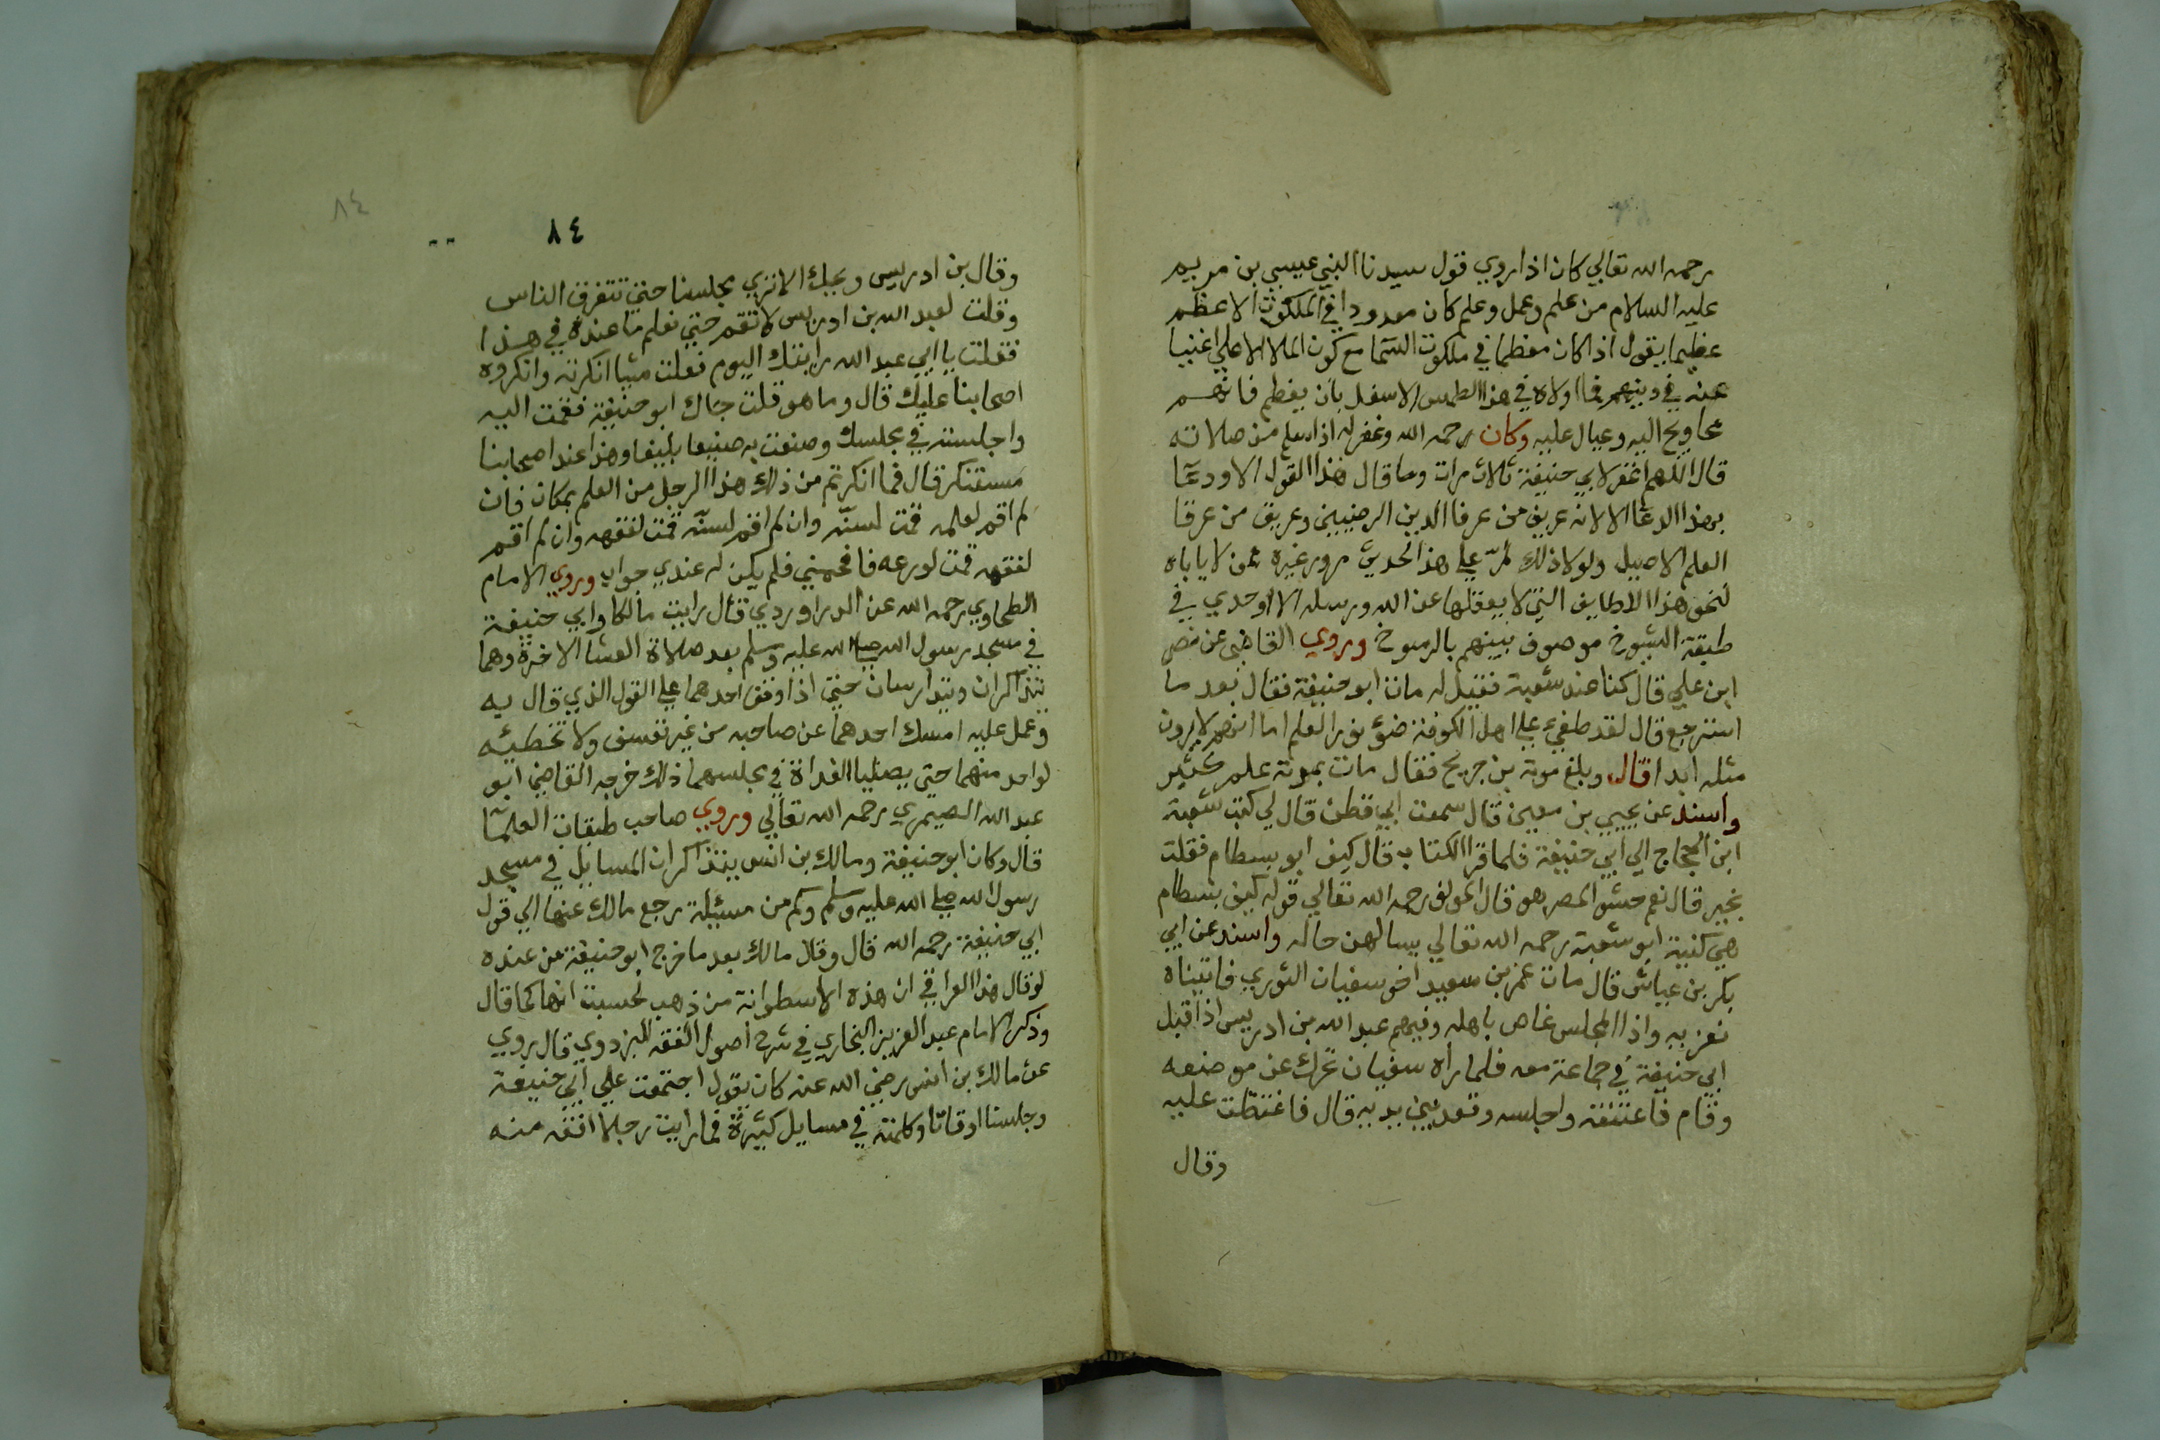 رحمه الله تعالي كان اذا روي قول سيدنا النبي عيسي بن مريم
عليه السلام من علم وعمل وعلم كان معدودا في الملكوت الاعظم
عظيما يقول اذا كان معظما في ملكوت السما مع كون الملا الاعلي اغنيا
عنه في دينهم فما اولاه في هذا الاسفل بان يعظم فانهم
محاويج اليه وعيال عليه وكان رحمه الله وغفر له اذا سلم من صلاته
قال اللهم اغفر لابي حنيفة ثلاث مرات وما قال هذا القول الا ودعا
بهذا الدعا الا لانه عريق من عرفا الدين الرضيين وعريق من عرفا
العلم الاصيل ولولا ذلك لمرّ علي هذا الحديث مرور غيره ممن لا ياباه
لنحو هذا اللطايف التي لا يعقلها عن الله ورسله الا اوحدي في
طبقة الشيوخ موصوف بينهم بالرسوخ وروي القاضي عن نصر
ابن علي قال كنا عند شعبة فقيل له مات ابو حنيفة فقال بعد ما
استرجع قال لقد طفي علي اهل الكوفة ضؤ نور العلم اما انهم لا يرون
مثله ابدا قال وبلغ موته بن جريج فقال مات بموته علم كثير
واسند عن يحيي بن معين قال سمعت ابي قطن قال لي كتب شعبة
ابن الحجاج الي ابي حنيفة فلما قرا الكتاب قال كيف ابو بسطام فقلت
بخير قال نعم حشو المصر هو قال المولف رحمه الله تعالي قوله كيف بسطام
هي كنية ابو شعبة رحمه الله تعالي يساله عن حاله واسند عن ابي
بكر بن عياش قال مات عمر بن سعيد اخو سفيان الثوري فاتيناه
نعزيه واذا المجلس غاص باهله وفيهم عبد الله بن ادريس اذ اقبل
ابي حنيفة في جماعة معه فلما راه سفيان تحرك عن موضعه
وقام فاعتنقه واجلسه وقعد بين يديه قال فاغتظت عليه
وقال
٨٤
٨٤
وقال بن ادريس ويحك الا تري بجلسنا حتي تتفرق الناس
وقلت لعبد الله بن ادريس لا تقم حتي نعلم ما عنده في هذا
فقلت يا ابي عبد الله رايتك اليوم فعلت شيا انكرته وانكروه
اصحابنا عليك قال وما هو قلت جاك ابو حنيفة فقمت اليه
واجلسته في مجلسك وصنعت به صنيعا بليغا وهذا عند اصحابنا
مستنكر قال فما انكرتم من ذلك هذا الرجل من العلم بمكان فان
لم اقم لعلمه قمت لسنّه وان لم اقم لسنّه قمت لفقهه وان لم اقم
لفقهه قمت لورعه فافحمني فلم يكن له عندي جواب وروي الامام
الطحاوي رحمه الله عن الدراوردي قال رايت مالكا وابي حنيفة
في مسجد رسول الله صلي الله عليه وسلم بعد صلاة العشا الاخرة وهما
يتذاكران ويتدارسان حتي اذا وقف احدهما علي القول الذي قال به
وعمل عليه امسك احدهما عن صاحبه من غير تعسف ولا تخطئه
لواحد منهما حتي يصليا الغداة في مجلسهما ذلك خرجه القاضي ابو
عبد الله الصيمري رحمه الله تعالي وروي صاحب طبقات العلمآ
قال وكان ابو حنيفة ومالك بن انس يتذاكران المسايل في مسجد
رسول الله صلي الله عليه وسلم وكم من مسئيلة رجع مالك عنها الي قول
ابي حنيفة رحمه الله قال وقال مالك بعد ما خرج ابو حنيفة من عنده
لو قال هذا العراقي ان هذه الاسطوانة من ذهب لحسبت انها كما قال
وذكر الامام عبد العزيز البخاري في شرح اصول الفقه للبزدوي قال روي
عن مالك بن انس رضي الله عنه كان يقول اجتمعت علي ابي حنيفة
وجلسنا اوقاتا وكلمته في مسايل كثيرة فما رايت رجلا افقه منه